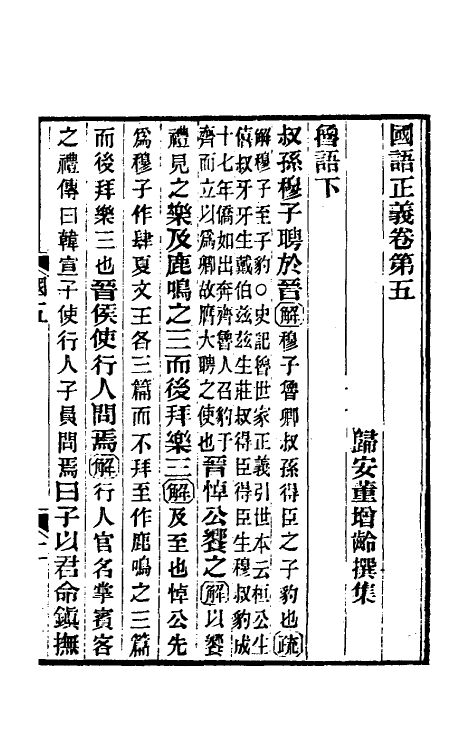 國語正義卷第五
歸安董增齡撰集
魯語下
叔孫穆子聘於晉解穆子魯卿叔孫得臣之子豹也疏
解穆子至子豹○史記魯世家正義引世本云桓公生
僖叔牙牙生戴伯兹兹生莊叔得臣得臣生穆叔豹成
十七年僑如出奔齊魯人召豹于
齊而立以為卿故膺大聘之使也
晉悼公饗之解以饗
禮見之樂及鹿鳴之三而後拜樂三解及至也悼公先
爲穆子作肆夏文王各三篇而不拜至作鹿鳴之三篇
而後拜樂三也晉侯使行人問焉解行人官名掌賓客
之禮傳曰韓宣子使行人子員問焉曰子以君命鎮撫
國五
一